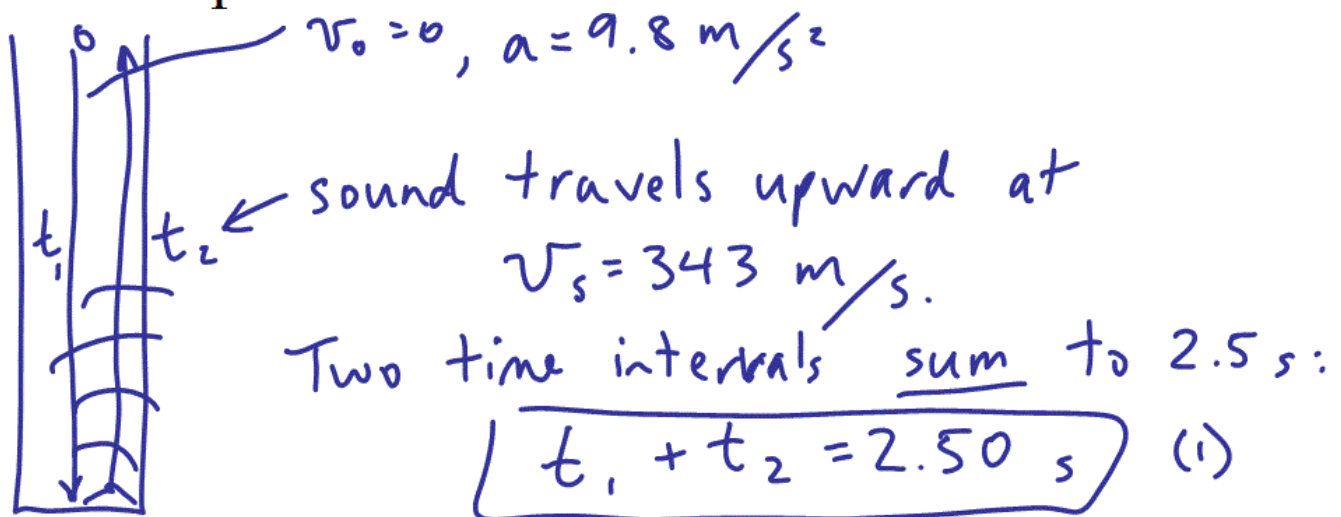 v₀ = 0, a = 9.8 m/s²
t₁ t₂ ← sound travels upward at
vₛ = 343 m/s.
Two time intervals sum to 2.5 s:
t₁ + t₂ = 2.50 s (1)